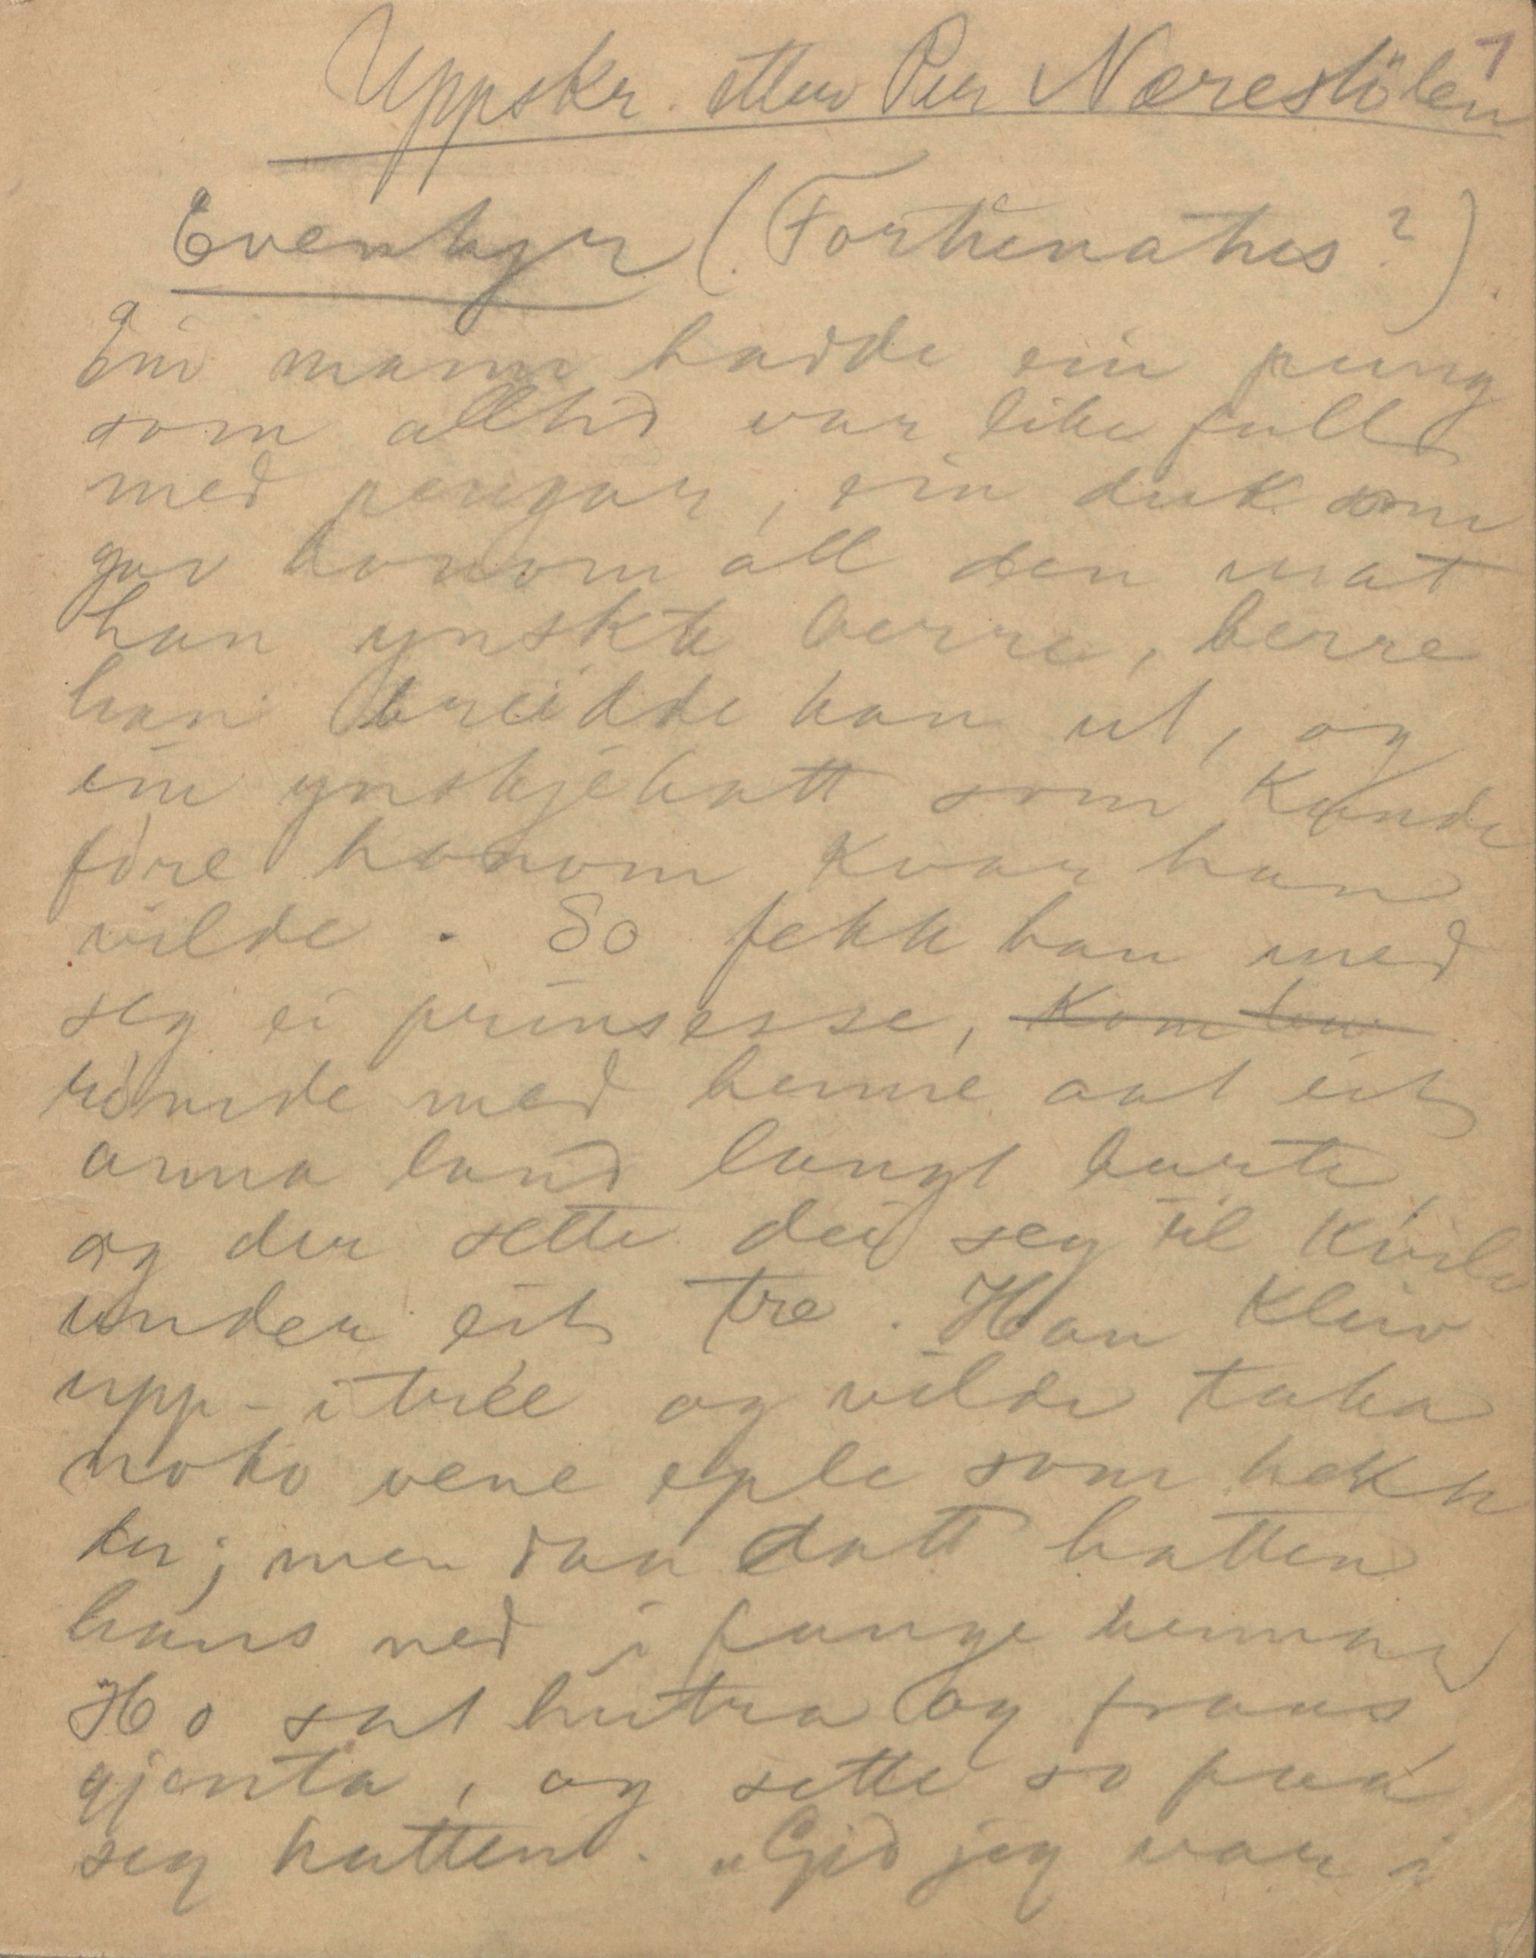 1
Uppskr. etter Per Nærestölen
Eventyr (Fortunatus?)
Ein mann hadde ein pung
som alltid var like full
med pengar, ein duk som
gav honom all den mat
han ynskte berre, berre
han breidde han ut, og
ein ynskjehatt som kunde
före honom kvar han
vilde. So fekk han med
seg ei prinsesse, kom
römde med henne aat eit
anna land langt burte,
og der sette dei seg til kvile
under eit tre. Han kleiv
upp-i treé og vilde taka
noko vene eple som hekk
der; men daa datt hatten
hans ned i fange hennar
Ho sat hutra og fraus
gjenta, og sette so paa
seg hatten. "Gid jeg var i